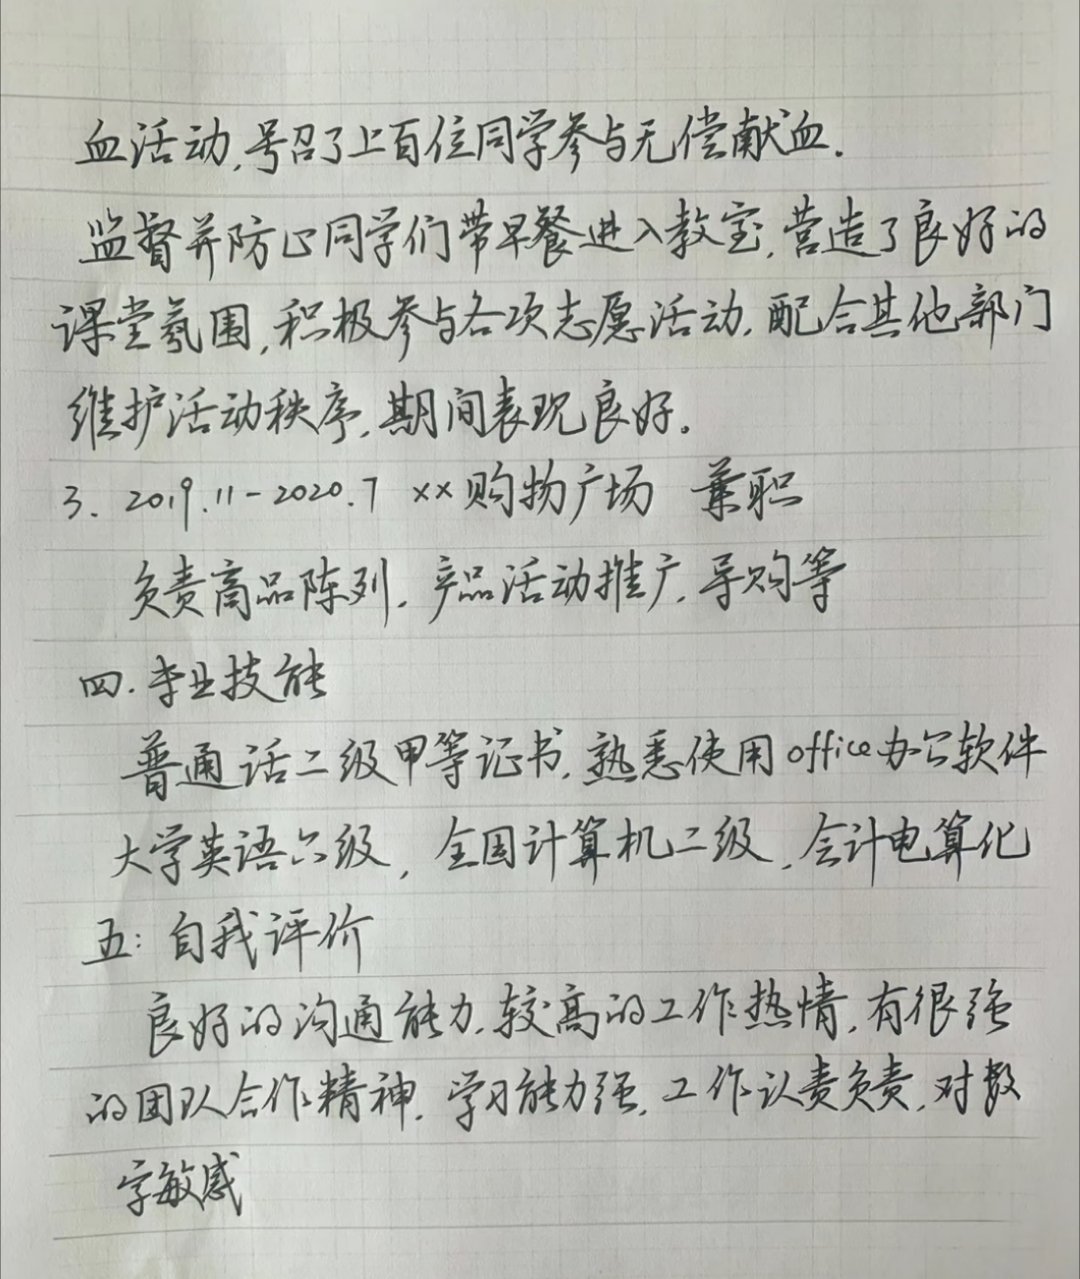 血活动,号召了上百位同学参与无偿献血.
监督并防止同学们带早餐进入教室,营造了良好的
课堂氛围,积极参与各项志愿活动,配合其他部门
维护活动秩序,期间表现良好.
3. 2019.11-2020.7 ××购物广场 兼职
负责商品陈列,产品活动推广,导购等
四.专业技能
普通话二级甲等证书,熟悉使用office办公软件
大学英语六级,全国计算机二级,会计电算化
五:自我评价
良好的沟通能力,较高的工作热情,有很强
的团队合作精神,学习能力强,工作认责负责,对数
字敏感